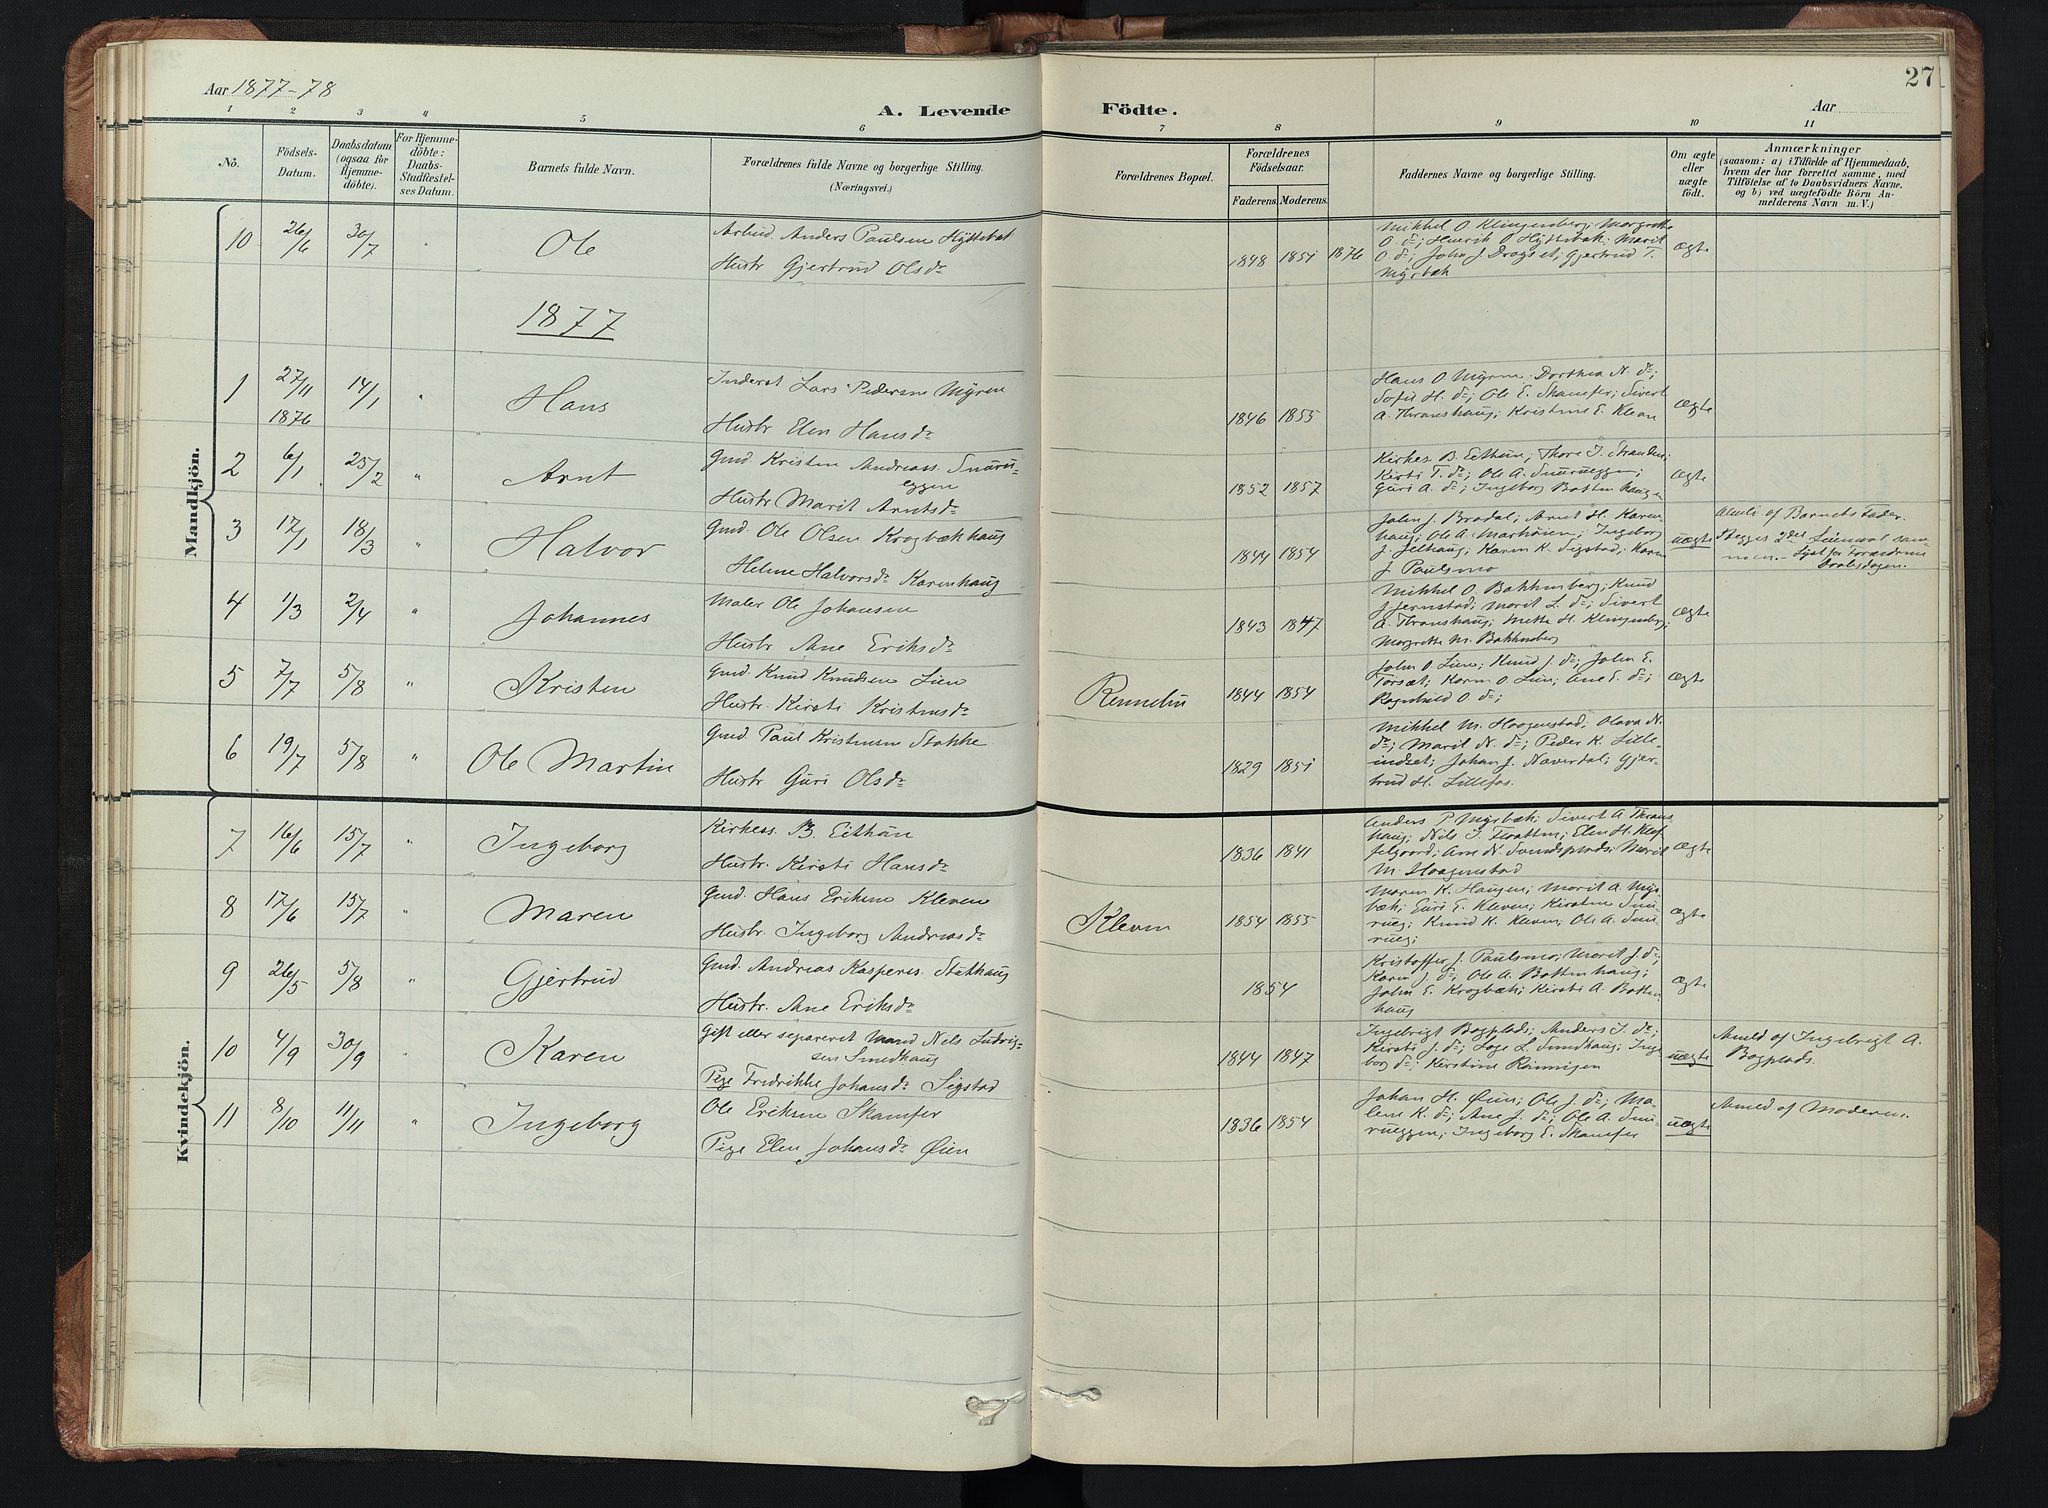 Aar 1877-78
27
A. Levende Födte.
Aar
1 2 3 4 5 6 7 8 9 10 11
No.
Födsels-
Datum.
Daabsdatum
(ogsaa for
Hjemme-
döbte).
For Hjemme-
döbte:
Daabs-
Stadfæstel-
ses Datum.
Barnets fulde Navn.
Forældrenes fulde Navne og borgerlige Stilling.
(Næringsvei.)
Forældrenes Bopæl.
Forældrenes
Födselsaar.
Faderens. Moderens.
Faddernes Navne og borgerlige Stilling.
Om ægte
eller
uægte
født.
Anmærkninger
(saasom: a) i Tilfælde af Hjemmedaab,
hvem der har forrettet samme, med
Tilföielse af to Daabsvidners Navne,
og b) ved uægtefödte Börn An-
melderens Navn m. V.)
Mandkjön.
10 26/6 30/7 " Ole
Arbeid. Anders Paulsen Hyttebak
Hustr Gjertrud Olsdr
1848 1851 1876
Mikkel O Klingenberg; Margrethe
O. dr; Henrik O Hyttebak; Marit
O dr; John J Dragset; Gjertrud T.
Myrbæk
Ægte
1877
1 27/11 1876 14/1 " Hans
Inderst Lars Pedersen Myren
Hustr Elen Hansdr
1846 1855
Hans O. Myren; Dorthea N. dr;
Sofie H. dr; Ole E. Skamfer; Sivert
A. Thranshaug; Kristine E. Kleven
Ægte
2 6/1 25/2 " Arnt
Gmd. Kristen Andreass. Snuru-
eggen
Hustr Marit Arntsdr
1852 1857
Kirkes. B. Eithun; Thore J. Stranden;
Kirsti T. dr; Ole A. Snurueggen;
Guri A. dr; Ingeborg Bottenhaugen
Ægte
3 17/1 18/3 " Halvor
Gmd. Ole Olsen Krogbækhaug
Helene Halvorsdr Karenhaug
1844 1854
John J. Bradal; Arnt H. Karen-
haug; Ole A. Marhöien; Ingeborg
J. Jelhaug; Karen K. Sigstad; Karen
J Paulsmo
uægte
Anm. af Barnets Fader.
Begges 2det Leiermaal sam-
men. - Lyst for Forældrene
Daabsdagen.
4 1/3 2/4 " Johannes
Maler Ole Johansen
Hustr Ane Eriksdr
1843 1847
Mikkel O. Bakkenberg; Knud
J Jernstad; Marit L. dr; Sivert
A. Thranshaug; Mette H. Klingenberg;
Margrethe M. Bakkenberg
Ægte
5 7/7 5/8 " Kristen
Gmd. Knud Knudsen Lien
Hustr. Kirsti Kristensdr
Rennelin
1844 1854
John O. Lien; Knud J. dr; John E.
Torsæt; Karen O. Lien; Ane E. dr;
Ragnhild O dr;
Ægte
6 19/7 5/8 " Ole Martin
Gmd. Paul Kristensen Stokke
Hustr Guri Olsdr
1829 1851
Mikkel M. Haagenstad; Olava N.
dr; Marit N. dr; Peder K. Lille-
indset; Johan J. Naverdal; Gjer-
trud H. Lillefos.
Kvindekjön.
7 16/6 15/7 " Ingeborg
Kirkess. B. Eithun
Hustr. Kirsti Hansdr
1836 1841
Anders P. Myrbæk; Sivert A Thrans
haug; Nils J. Troatten; Elen H. Klef
felgaard; Ane N. Svindsplads; Marit
M. Haagenstad
Ægte
8 17/6 15/7 " Maren
Gmd. Hans Eriksen Kleven
Hustr. Ingeborg Andreasdr
Kleven
1854 1855
Maren K. Haugen; Marit A. Myr
bæk; Guri E. Kleven; Kirstine Snu-
rueg; Knud K. Kleven; Ole A. Snu-
rueg;
Ægte
9 26/5 5/8 " Gjertrud
Gmd. Andreas Kaspers. Stokhaug
Hustr. Ane Eriksdr
1854
Kristoffer J. Paulsmo; Marit J. dr;
Karen J. dr; Ole A. Bottenhaug;
John E. Krogbæk; Kirsti A. Botten
haug
Ægte
10 4/9 30/9 Karen
Gift eller separeret Mand Nels Ludvig-
sen Smedhaug
Pige Fredrikke Johansdr Sigstad
1844 1847
Ingebrigt Bogplads; Anders J. dr;
Kirsti J. dr; Lage L. Smedhaug; Inge
borg dr; Kerstine Rönningen
uægte
Anmeld af Ingebrigt A.
Bogplads.
11 8/10 11/11 " Ingeborg
Ole Eriksen Skamfer
Pige Elen Johansdr Øien
1836 1854
Johan H. Øien; Ole J. dr; Ma-
lene K. dr; Ane J. dr; Ole A. Snu-
rueggen; Ingeborg E. Skamfer
uægte
Anmed af Moderen.